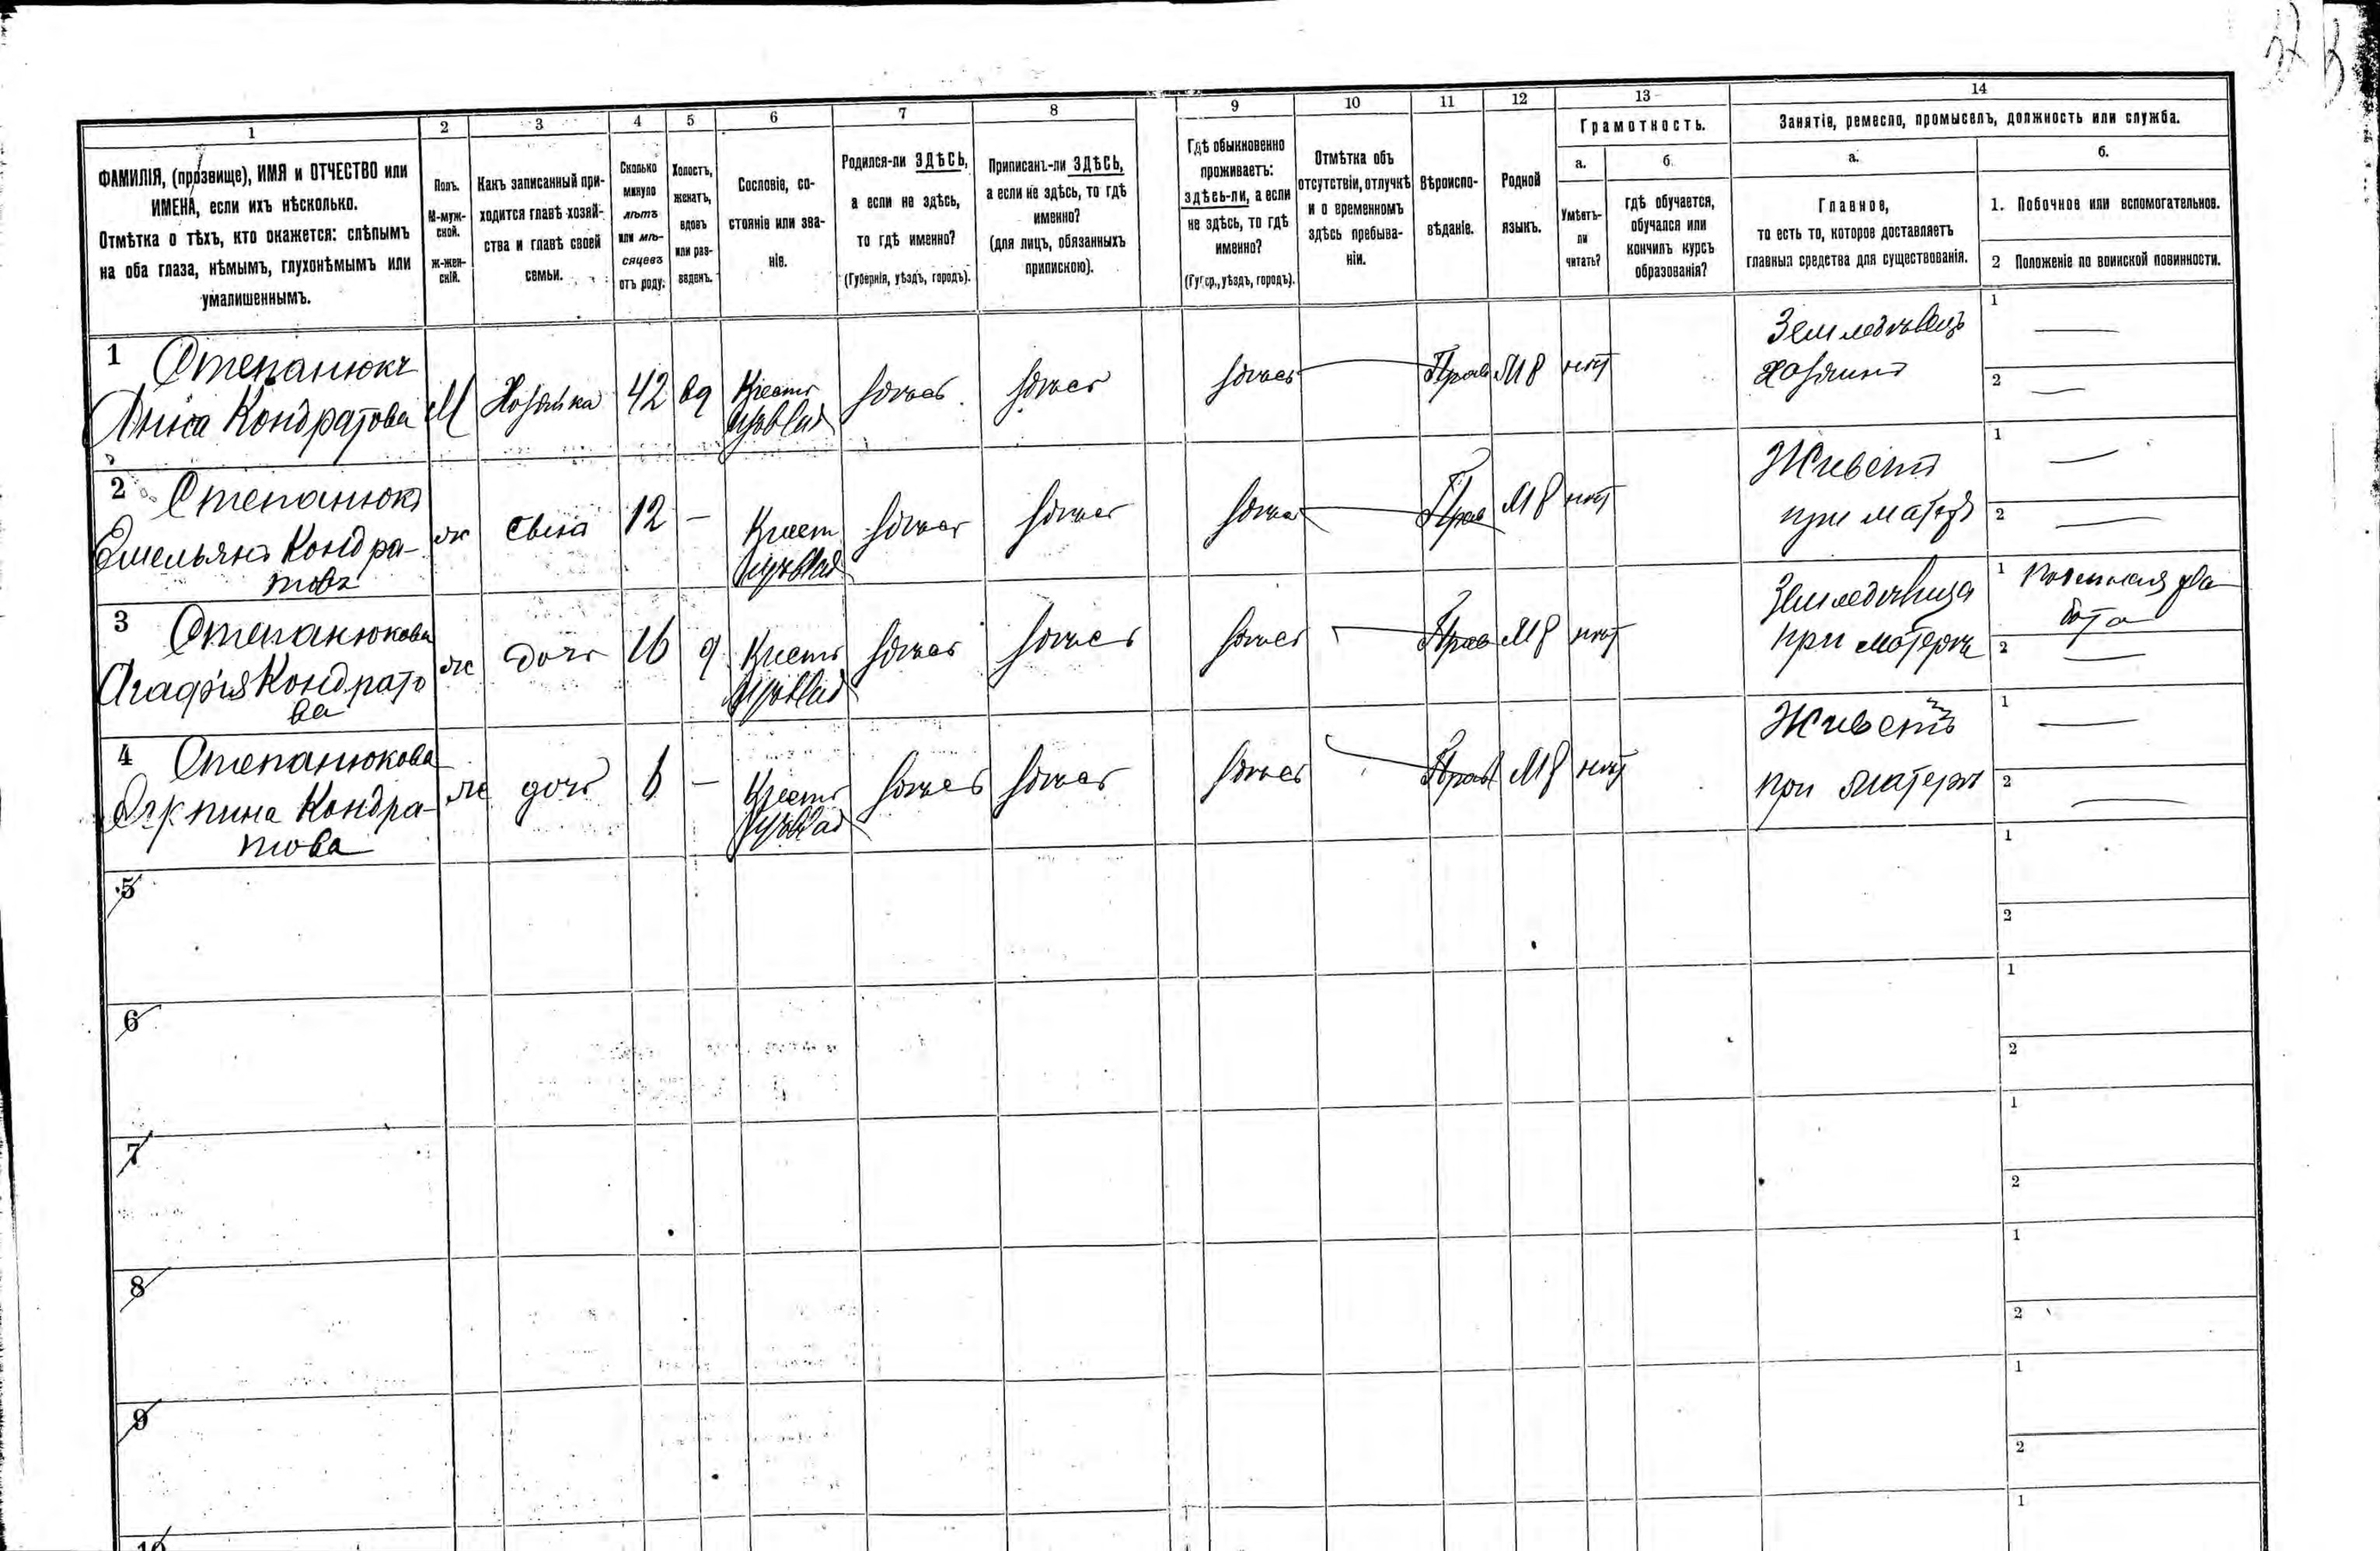 1
2
3
4
5
6
7
8
9
10
11
12
13
14
ФАМИЛІЯ, (прозвище), ИМЯ и ОТЧЕСТВО или
ИМЕНА, если ихъ нѣсколько.
Отмѣтка о тѣхъ, кто окажется: слѣпымъ
на оба глаза, нѣмымъ, глухонѣмымъ или
умалишеннымъ.
Полъ.
М-муж-
ской.
Ж-жен-
скій.
Какъ записанный при-
ходится главѣ хозяй-
ства и главѣ своей
семьи.
Сколько
минуло
лѣтъ
или мѣ-
сяцевъ
отъ роду.
Холостъ,
женатъ,
вдовъ
или раз-
веденъ.
Сословіе, со-
стояніе или зва-
ніе.
Родился-ли ЗДѢСЬ,
а если не здѣсь,
то гдѣ именно?
(Губернія, уѣздъ, городъ).
Приписанъ-ли ЗДѢСЬ,
а если не здѣсь, то гдѣ
именно?
(для лицъ, обязанныхъ
припискою).
Гдѣ обыкновенно
проживаетъ:
здѣсь-ли, а если
не здѣсь, то гдѣ
именно?
(Губер., уѣздъ, городъ).
Отмѣтка объ
отсутствіи, отлучкѣ
и о временномъ
здѣсь пребыва-
ніи.
Вѣроиспо-
вѣданіе.
Родной
языкъ.
Грамотность.
а.
Умѣетъ-
ли
читать?
б.
гдѣ обучается,
обучался или
кончилъ курсъ
образованія?
Занятіе, ремесло, промыселъ, должность или служба.
а.
Главное,
то есть то, которое доставляетъ
главныя средства для существованія.
б.
1. Побочное или вспомогательное.
2 Положеніе по воинской повинности.
1 Степанюкъ
Анна Кондратова
М
Хозяйка
42
вд
Крест
здѣсь
здѣсь
здѣсь
Прав
М8
нѣт
Земледѣлец
Хозяинъ
1 —
2 —
2 Степанюкъ
Емельянъ Кондра-
товъ
ж
Сынъ
12
—
Крест
здѣсь
здѣсь
здѣсь
Прав
М8
нѣт
Живетъ
при
1 —
2 —
3 Степанюкова
Агафія Кондрато
ва
ж
дочь
16
д
Крест
здѣсь
здѣсь
здѣсь
Прав
М8
нѣт
Земледѣлица
при матери
1 Поденная ра
бота
2 —
4 Степанюкова
Кондра-
това
ж
дочь
6
—
Крест
здѣсь
здѣсь
здѣсь
Прав
М8
нѣт
Живетъ
при матери
1 —
2 —
5
1
2
6
1
2
7
1
2
8
1
2
9
1
2
10
1